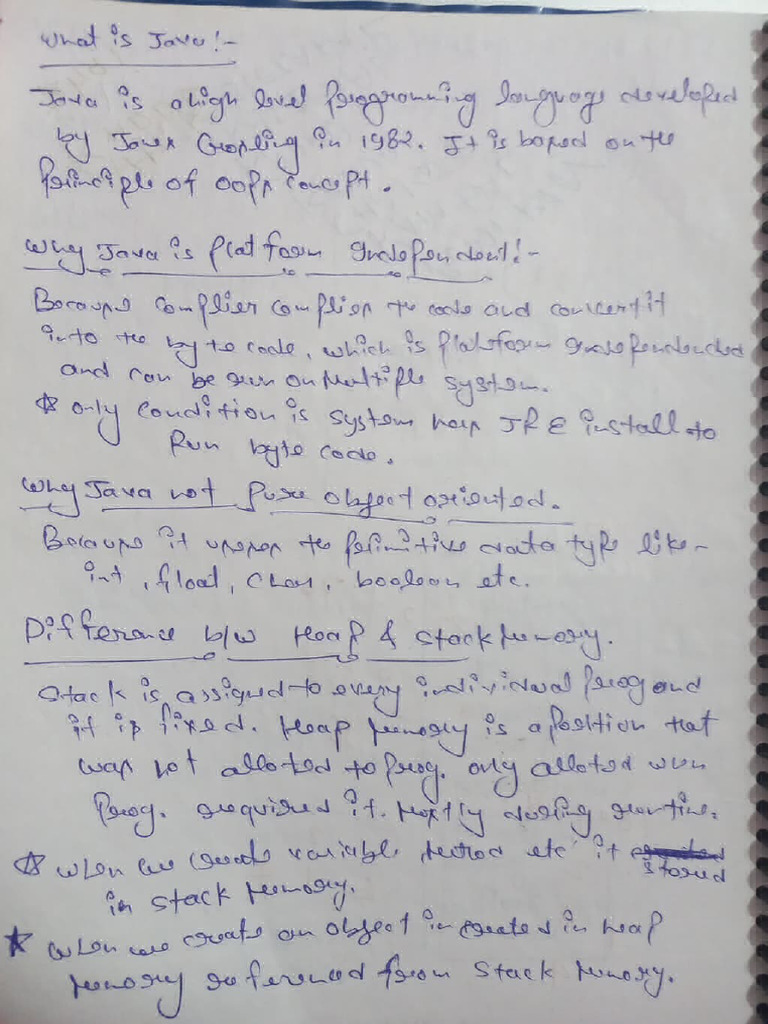 What is Java:-
Java is a high level programming language developed
by James Gosling in 1982. It is based on the
principle of oops concept.
Why Java is platform independent:-
Because complier complies the code and convert it
into the byte code, which is platform independented
and can be run on Multiple system.
☆ only condition is system has JRE install to
Run byte code.
Why Java not pure object oriented.
Because it uses the primitive data type like-
int, float, char, boolean etc.
Difference b/w Heap & stack Memory.
Stack is assigned to every individual prog and
it is fixed. Heap Memory is a position that
was not alloted to prog. only alloted when
prog. required it. Mostly during runtime.
☆ when we create variable, Method etc it stored
in stack Memory.
★ when we create an object in created in heap
Memory referenced from Stack Memory.